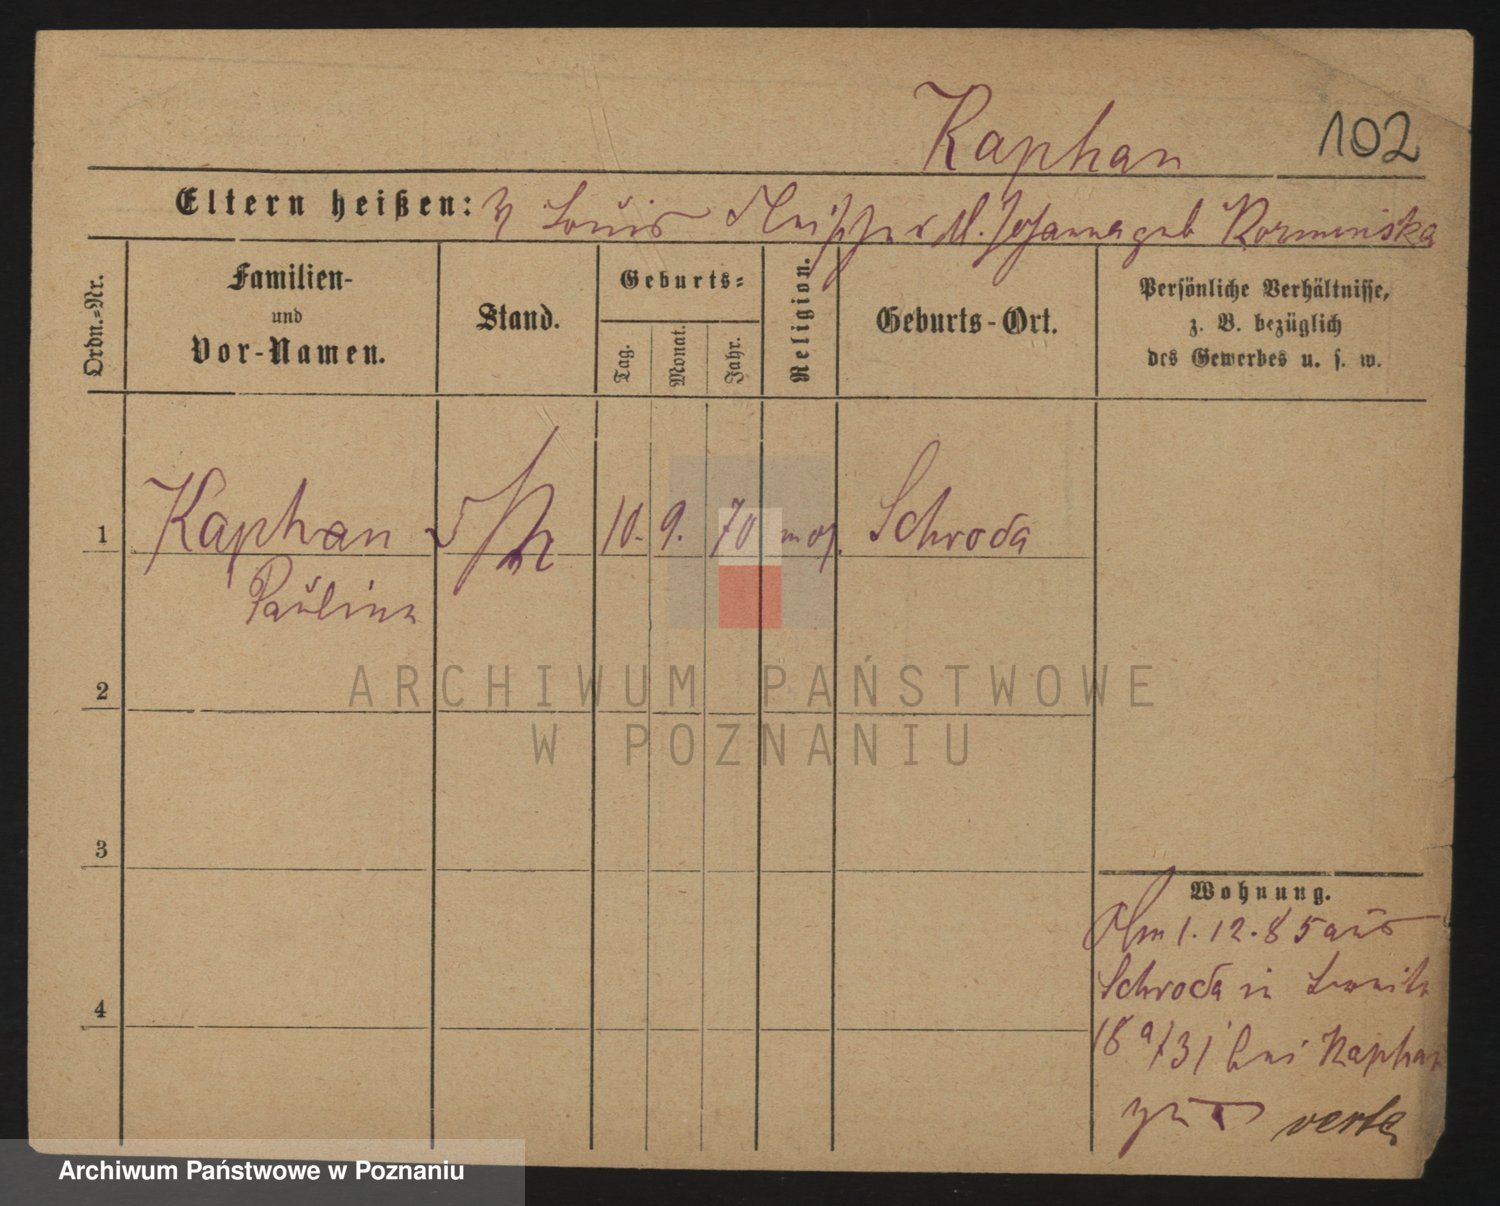 Kaphan 102
Eltern heißen: V Louis Fleischer M. Johanna geb Korminska
Ordn.-Nr.
Familien-
und
Vor-Namen.
Stand.
Geburts-
Tag.
Monat.
Jahr.
Religion.
Geburts-Ort.
Persönliche Verhältnisse,
z. B. bezüglich
des Gewerbes u. s. w.
1 Kaphan 10. 9. 70 mos. Schroda
Pauline
2
3
4
Wohnung.
Am 1.12.85 aus
Schroda in
18a/31 bei Kaphan
verte
ARCHIWUM PAŃSTWOWE
W POZNANIU
Archiwum Państwowe w Poznaniu